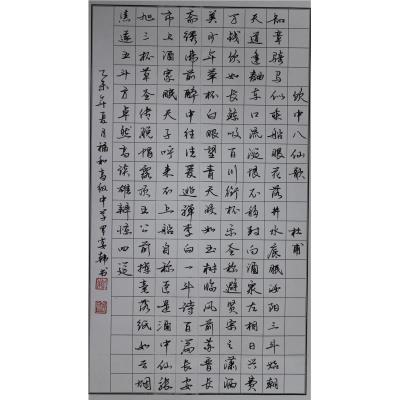 饮中八仙歌 杜甫
知章骑马似乘船眼花落井水底眠汝阳三斗始朝
天道逢麴车口流涎恨不移封向酒泉左相日兴费
万钱饮如长鲸吸百川衔杯乐圣称避贤宗之潇洒
美少年举杯白眼望青天皎如玉树临风前苏晋长
斋绣佛前醉中往往爱逃禅李白一斗诗百篇长安
市上酒家眠天子呼来不上船自称臣是酒中仙张
旭三杯草圣传脱帽露顶王公前挥毫落纸如云烟
焦遂五斗方卓然高谈雄辩惊四筵
年夏月福和高级中学